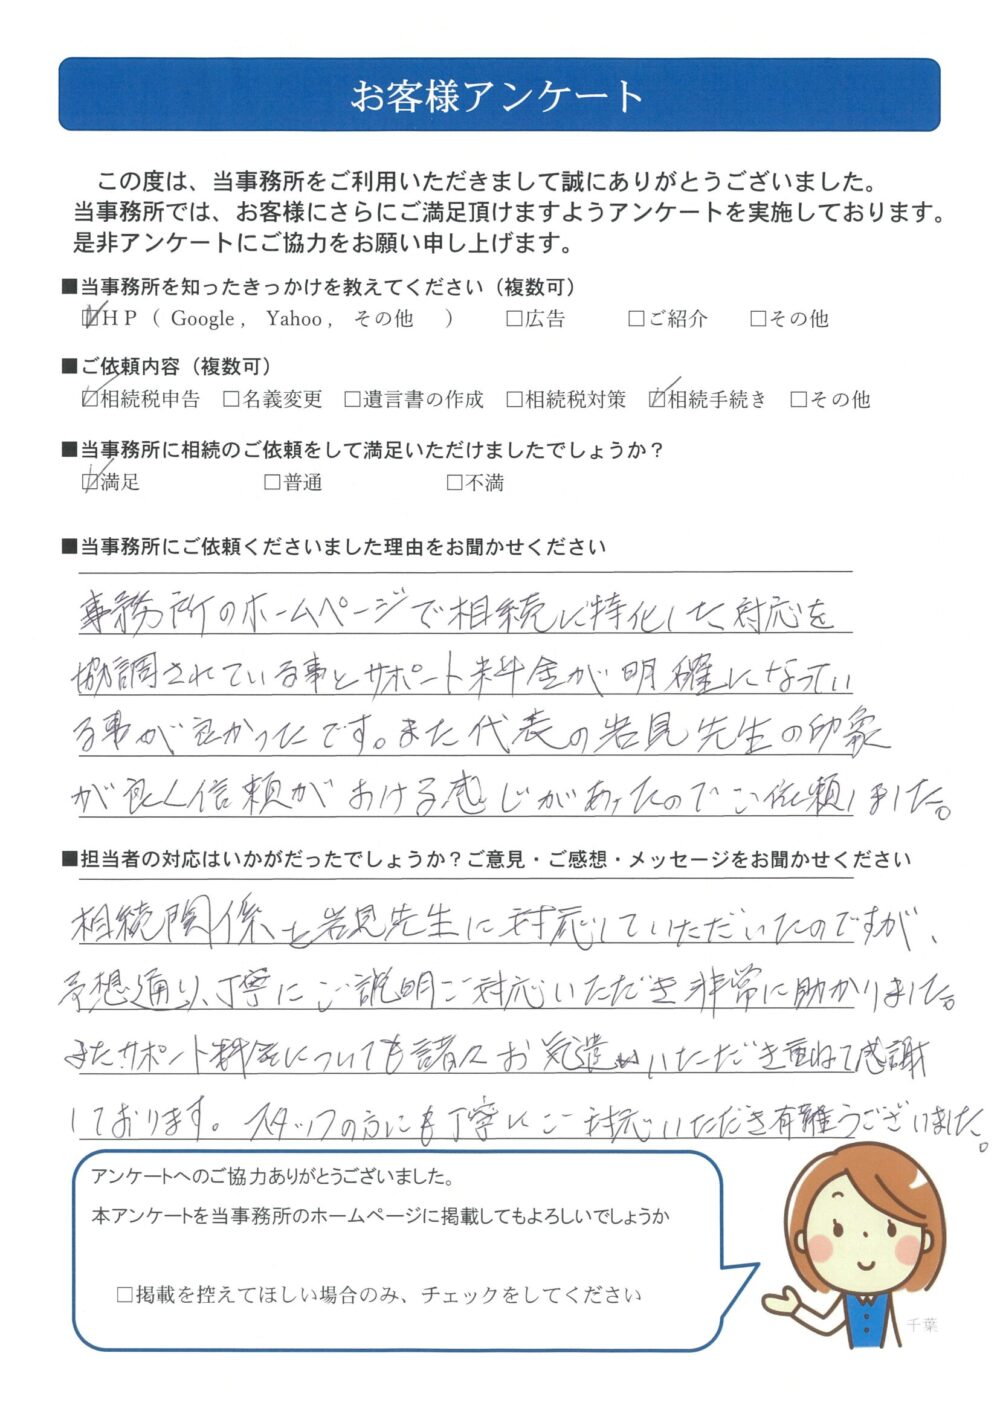 お客様アンケート
この度は、当事務所をご利用いただきまして誠にありがとうございました。
当事務所では、お客様にさらにご満足頂けますようアンケートを実施しております。
是非アンケートにご協力をお願い申し上げます。
■当事務所を知ったきっかけを教えてください（複数可）
☑HP（ Google , Yahoo , その他 ） □広告 □ご紹介 □その他
■ご依頼内容（複数可）
☑相続税申告 □名義変更 □遺言書の作成 □相続税対策 ☑相続手続き □その他
■当事務所に相続のご依頼をして満足いただけましたでしょうか？
☑満足 □普通 □不満
■当事務所にご依頼くださいました理由をお聞かせください
事務所のホームページで相続に特化した対応を
協調されている事とサポート料金が明確になってい
る事が良かったです。また代表の岩見先生の印象
が良く信頼がおける感じがあったのでご依頼しました。
■担当者の対応はいかがだったでしょうか？ご意見・ご感想・メッセージをお聞かせください
相続関係を岩見先生に対応していただいたのですが、
予想通り、丁寧にご説明ご対応いただき非常に助かりました。
またサポート料金についても諸々お気遣いいただき重ねて感謝
しております。スタッフの方にも丁寧にご対応いただき有難うございました。
アンケートへのご協力ありがとうございました。
本アンケートを当事務所のホームページに掲載してもよろしいでしょうか
□掲載を控えてほしい場合のみ、チェックをしてください
千葉